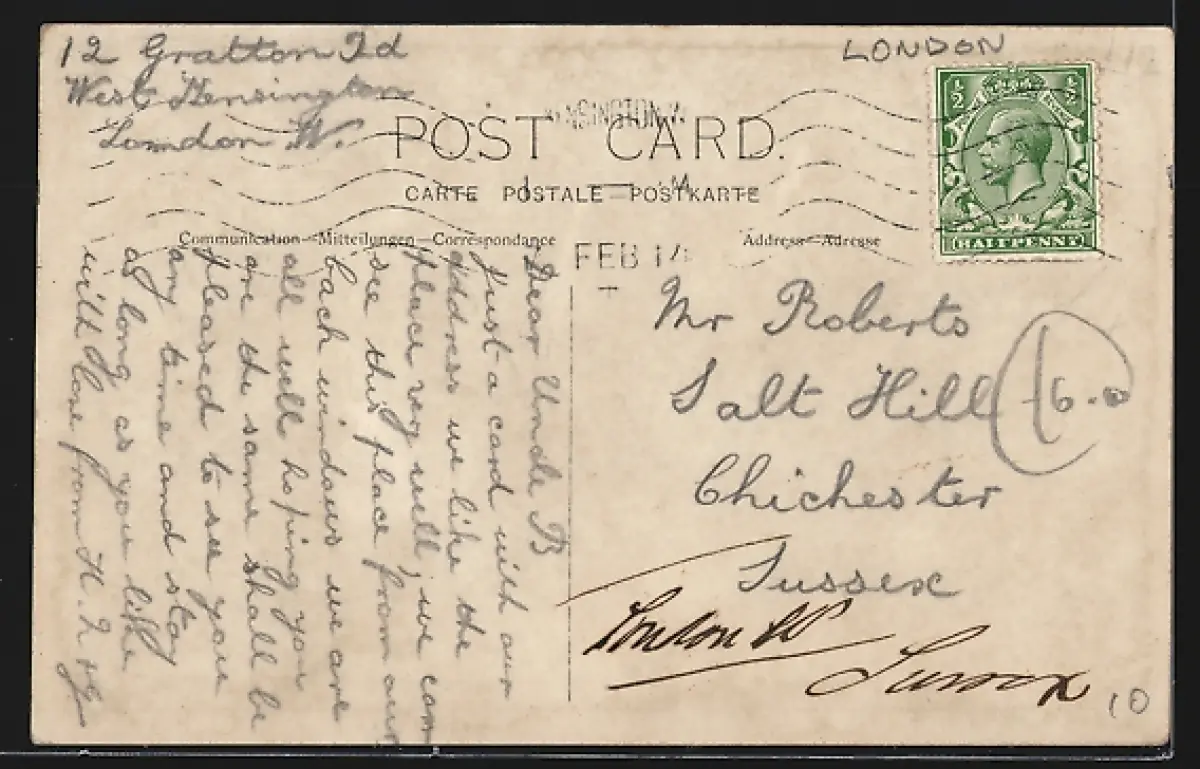 12 Gratton Rd
West Kensington
London W.
LONDON
KENSINGTON.W.
POST CARD.
CARTE POSTALE—POSTKARTE
Communication—Mitteilungen—Correspondance
Address—Adresse
FEB 14
½ ½
HALFPENNY
Dear Uncle B
Just a card with our
address we like the
place very well, we can
see this place from our
back windows we are
all well hoping you
are the same shall be
pleased to see you
any time and stay
as long as you like
with love from H.
Mr Roberts
Salt Hill
Chichester
Sussex
6.0
London
Sussex
10